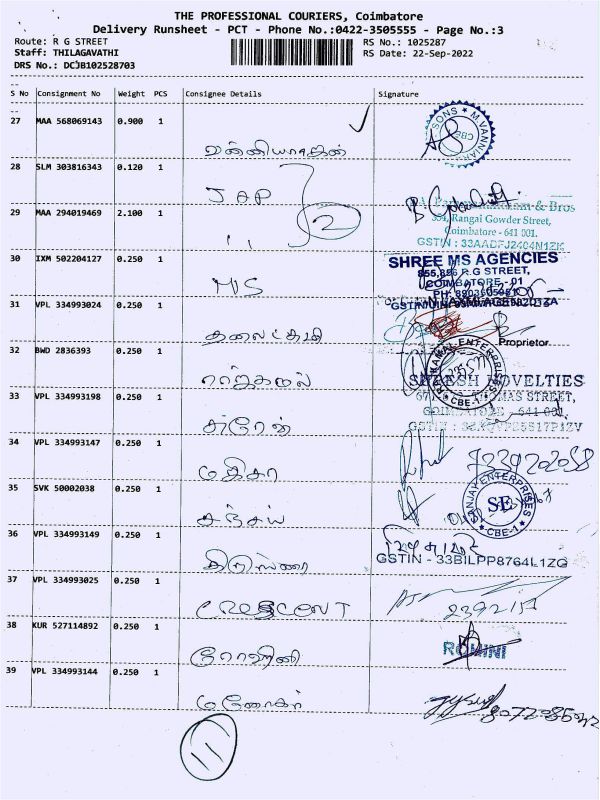 THE PROFESSIONAL COURIERS, Coimbatore
Delivery Runsheet - PCT - Phone No.:0422-3505555 - Page No.:3
Route: R G STREET
Staff: THILAGAVATHI
DRS No.: DCJB102528703
RS No.: 1025287
RS Date: 22-Sep-2022
S No Consignment No Weight PCS Consignee Details Signature
27 MAA 568069143 0.900 1
SONS M.VANNIAR CBE
வன்னியராஜன்
28 SLM 303816343 0.120 1
JAP
2
29 MAA 294019469 2.100 1
& Bros
354, Rangai Gowder Street,
Coimbatore - 641 001.
GSTIN : 33AADFJ2404N1ZK
,,
30 IXM 502204127 0.250 1
SHREE MS AGENCIES
855,856 R.G STREET,
COIMBATORE - 01
MS
31 VPL 334993024 0.250 1
Proprietor
கலைட்சுமி
32 BWD 2836393 0.250 1
KAMAL ENTERPRISES CBE-1
ராஜ்கமல்
33 VPL 334993198 0.250 1
SURESH NOVELTIES
THOMAS STREET,
COIMBATORE - 641 001.
சுரேஷ்
34 VPL 334993147 0.250 1
மதிசா
35 SVK 50002038 0.250 1
SANJAY ENTERPRISES
SE
CBE-1
சஞ்சய்
36 VPL 334993149 0.250 1
GSTIN - 33BILPP8764L1ZG
37 VPL 334993025 0.250 1
CRESCENT
38 KUR 527114892 0.250 1
ROHINI
ரோஹினி
39 VPL 334993144 0.250 1
மனோகர்
11